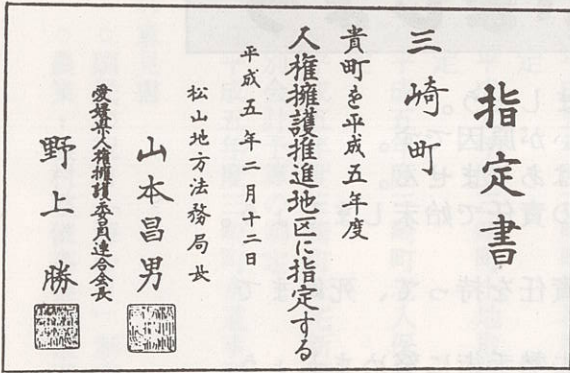 指定書
三崎町
貴町を平成五年度
人権擁護推進地区に指定する
平成五年二月十二日
松山地方法務局長
山本昌男
愛媛県人権擁護委員連合会長
野上勝